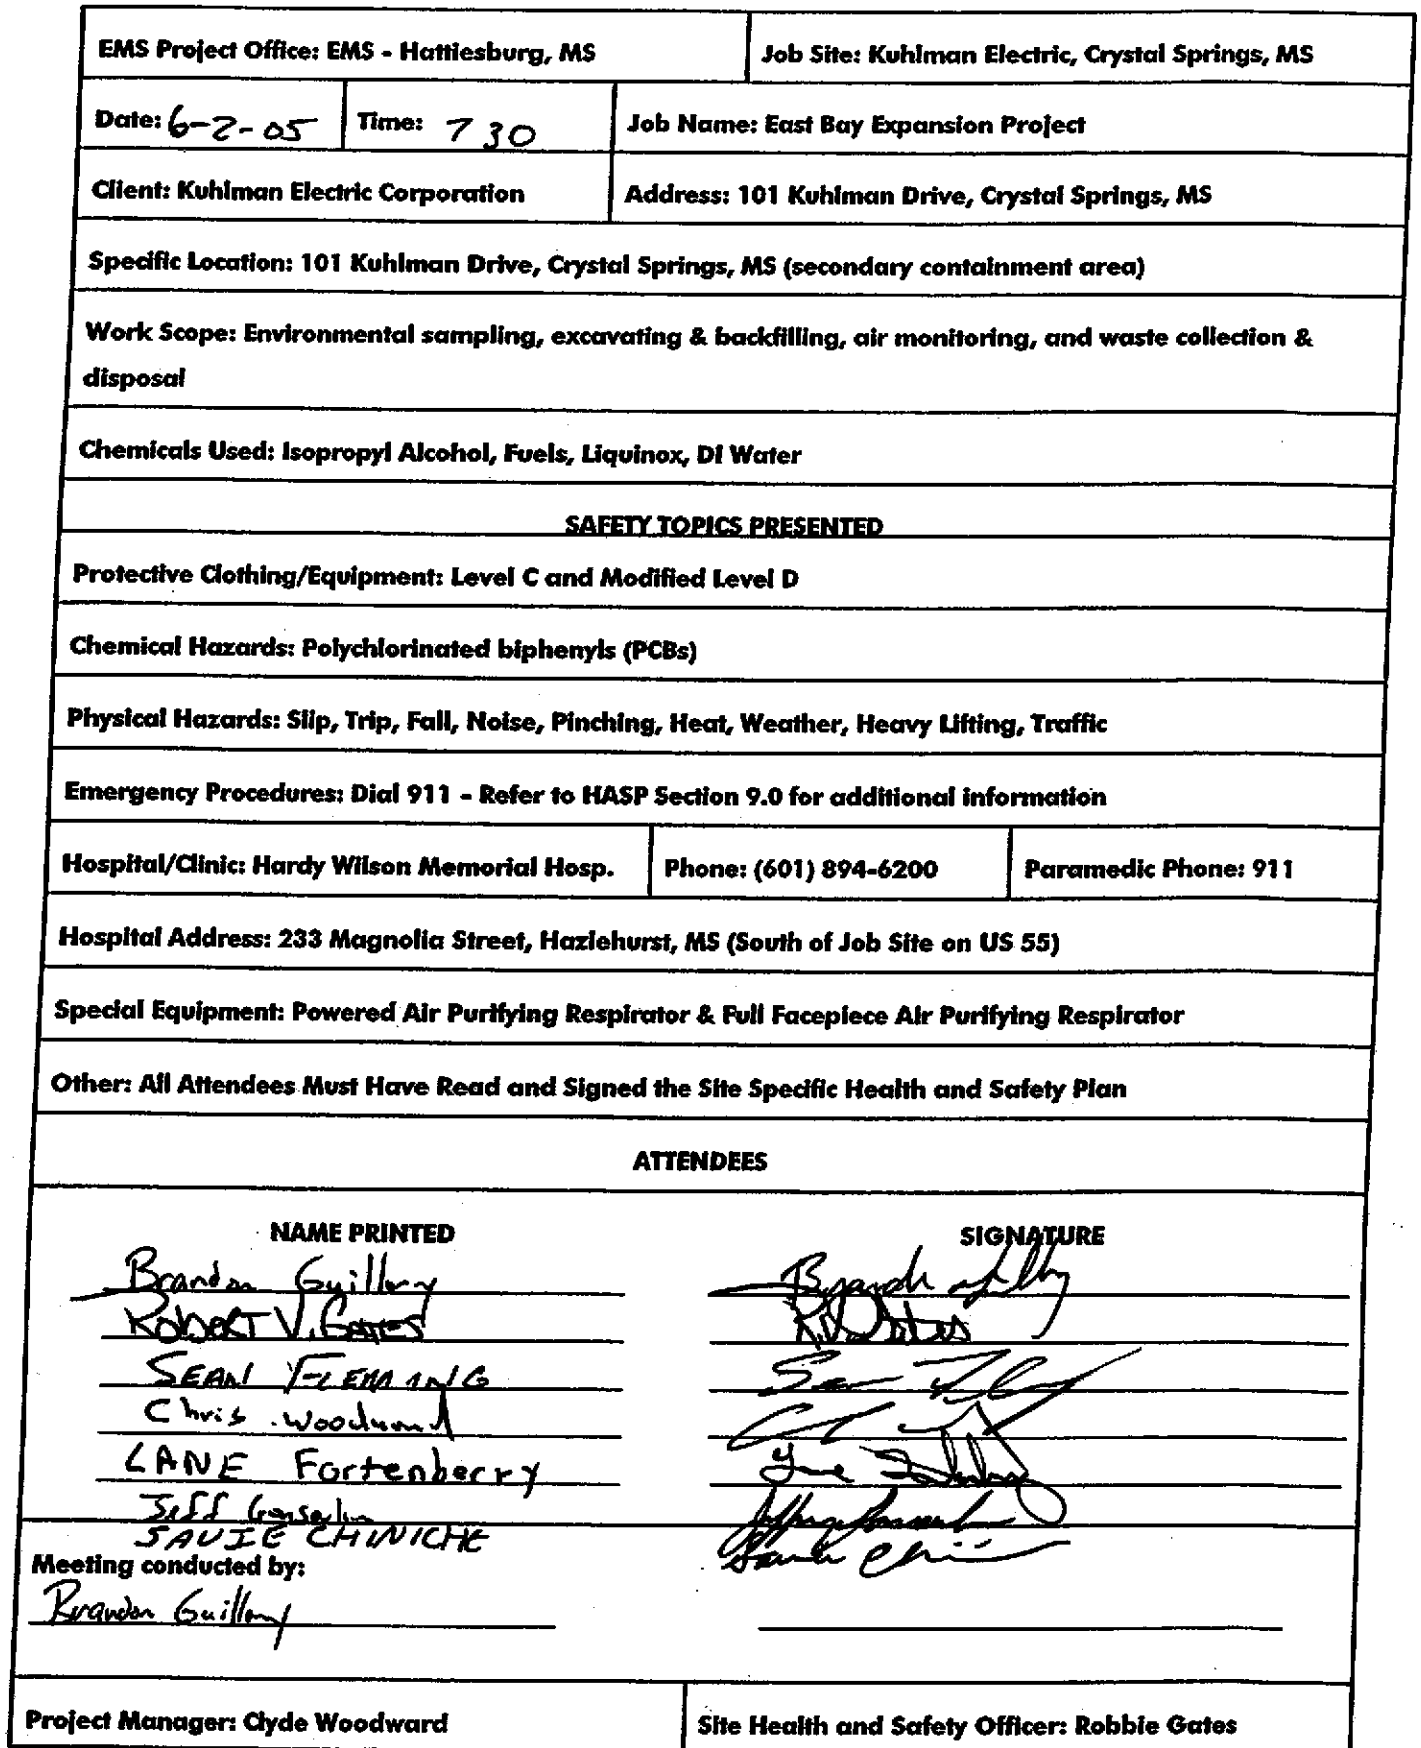 EMS Project Office: EMS - Hattiesburg, MS
Job Site: Kuhlman Electric, Crystal Springs, MS
Date: 6-2-05
Time: 730
Job Name: East Bay Expansion Project
Client: Kuhlman Electric Corporation
Address: 101 Kuhlman Drive, Crystal Springs, MS
Specific Location: 101 Kuhlman Drive, Crystal Springs, MS (secondary containment area)
Work Scope: Environmental sampling, excavating & backfilling, air monitoring, and waste collection &
disposal
Chemicals Used: Isopropyl Alcohol, Fuels, Liquinox, DI Water
SAFETY TOPICS PRESENTED
Protective Clothing/Equipment: Level C and Modified Level D
Chemical Hazards: Polychlorinated biphenyls (PCBs)
Physical Hazards: Slip, Trip, Fall, Noise, Pinching, Heat, Weather, Heavy Lifting, Traffic
Emergency Procedures: Dial 911 - Refer to HASP Section 9.0 for additional information
Hospital/Clinic: Hardy Wilson Memorial Hosp.
Phone: (601) 894-6200
Paramedic Phone: 911
Hospital Address: 233 Magnolia Street, Hazlehurst, MS (South of Job Site on US 55)
Special Equipment: Powered Air Purifying Respirator & Full Facepiece Air Purifying Respirator
Other: All Attendees Must Have Read and Signed the Site Specific Health and Safety Plan
ATTENDEES
NAME PRINTED
SIGNATURE
Brandon Guillory
Robert V. Gates
SEAN FLEMING
Chris Woodward
LANE Fortenberry
Jeff
SAVIE CHINICHE
Meeting conducted by:
Brandon Guillory
Project Manager: Clyde Woodward
Site Health and Safety Officer: Robbie Gates